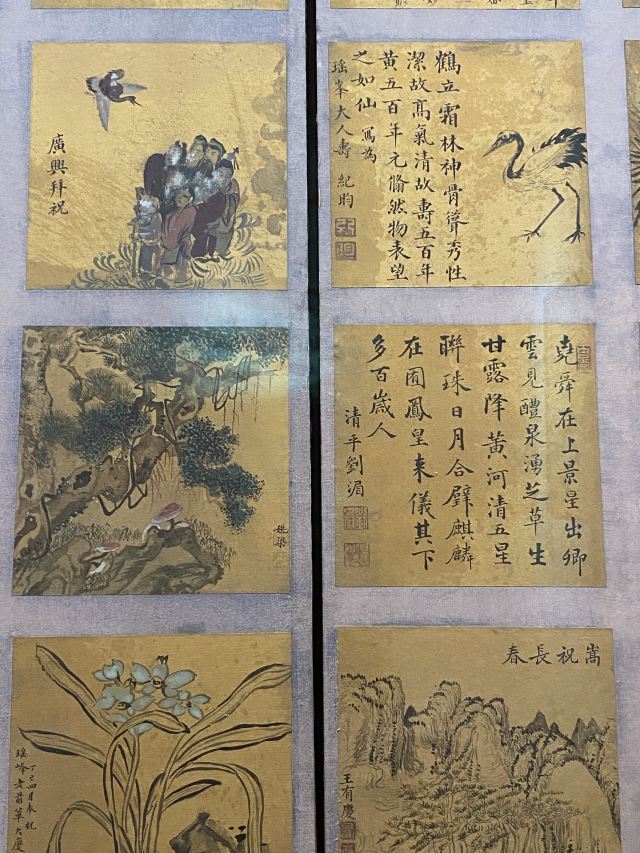 廣興拜祝
鶴立霜林神骨聳秀性
潔故髙氣清故壽五百年
黄五百年元翛然物表望
之如仙 寫為
瑶峯大人壽 紀昀
姚梁
堯舜在上景星出卿
雲見醴泉湧芝草生
甘露降黄河清五星
聯珠日月合璧麒麟
在囿鳳皇来儀其下
多百歲人
清平劉湄
丁巳四月奉祝
瑶峰老前輩大慶
嵩祝長春
王有慶